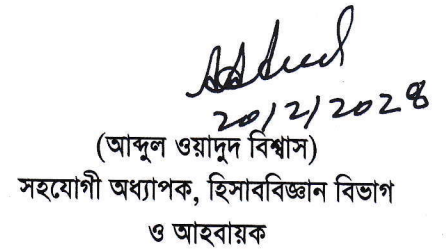 20/2/2028
(আব্দুল ওয়াদুদ বিশ্বাস)
সহযোগী অধ্যাপক, হিসাববিজ্ঞান বিভাগ
ও আহবায়ক